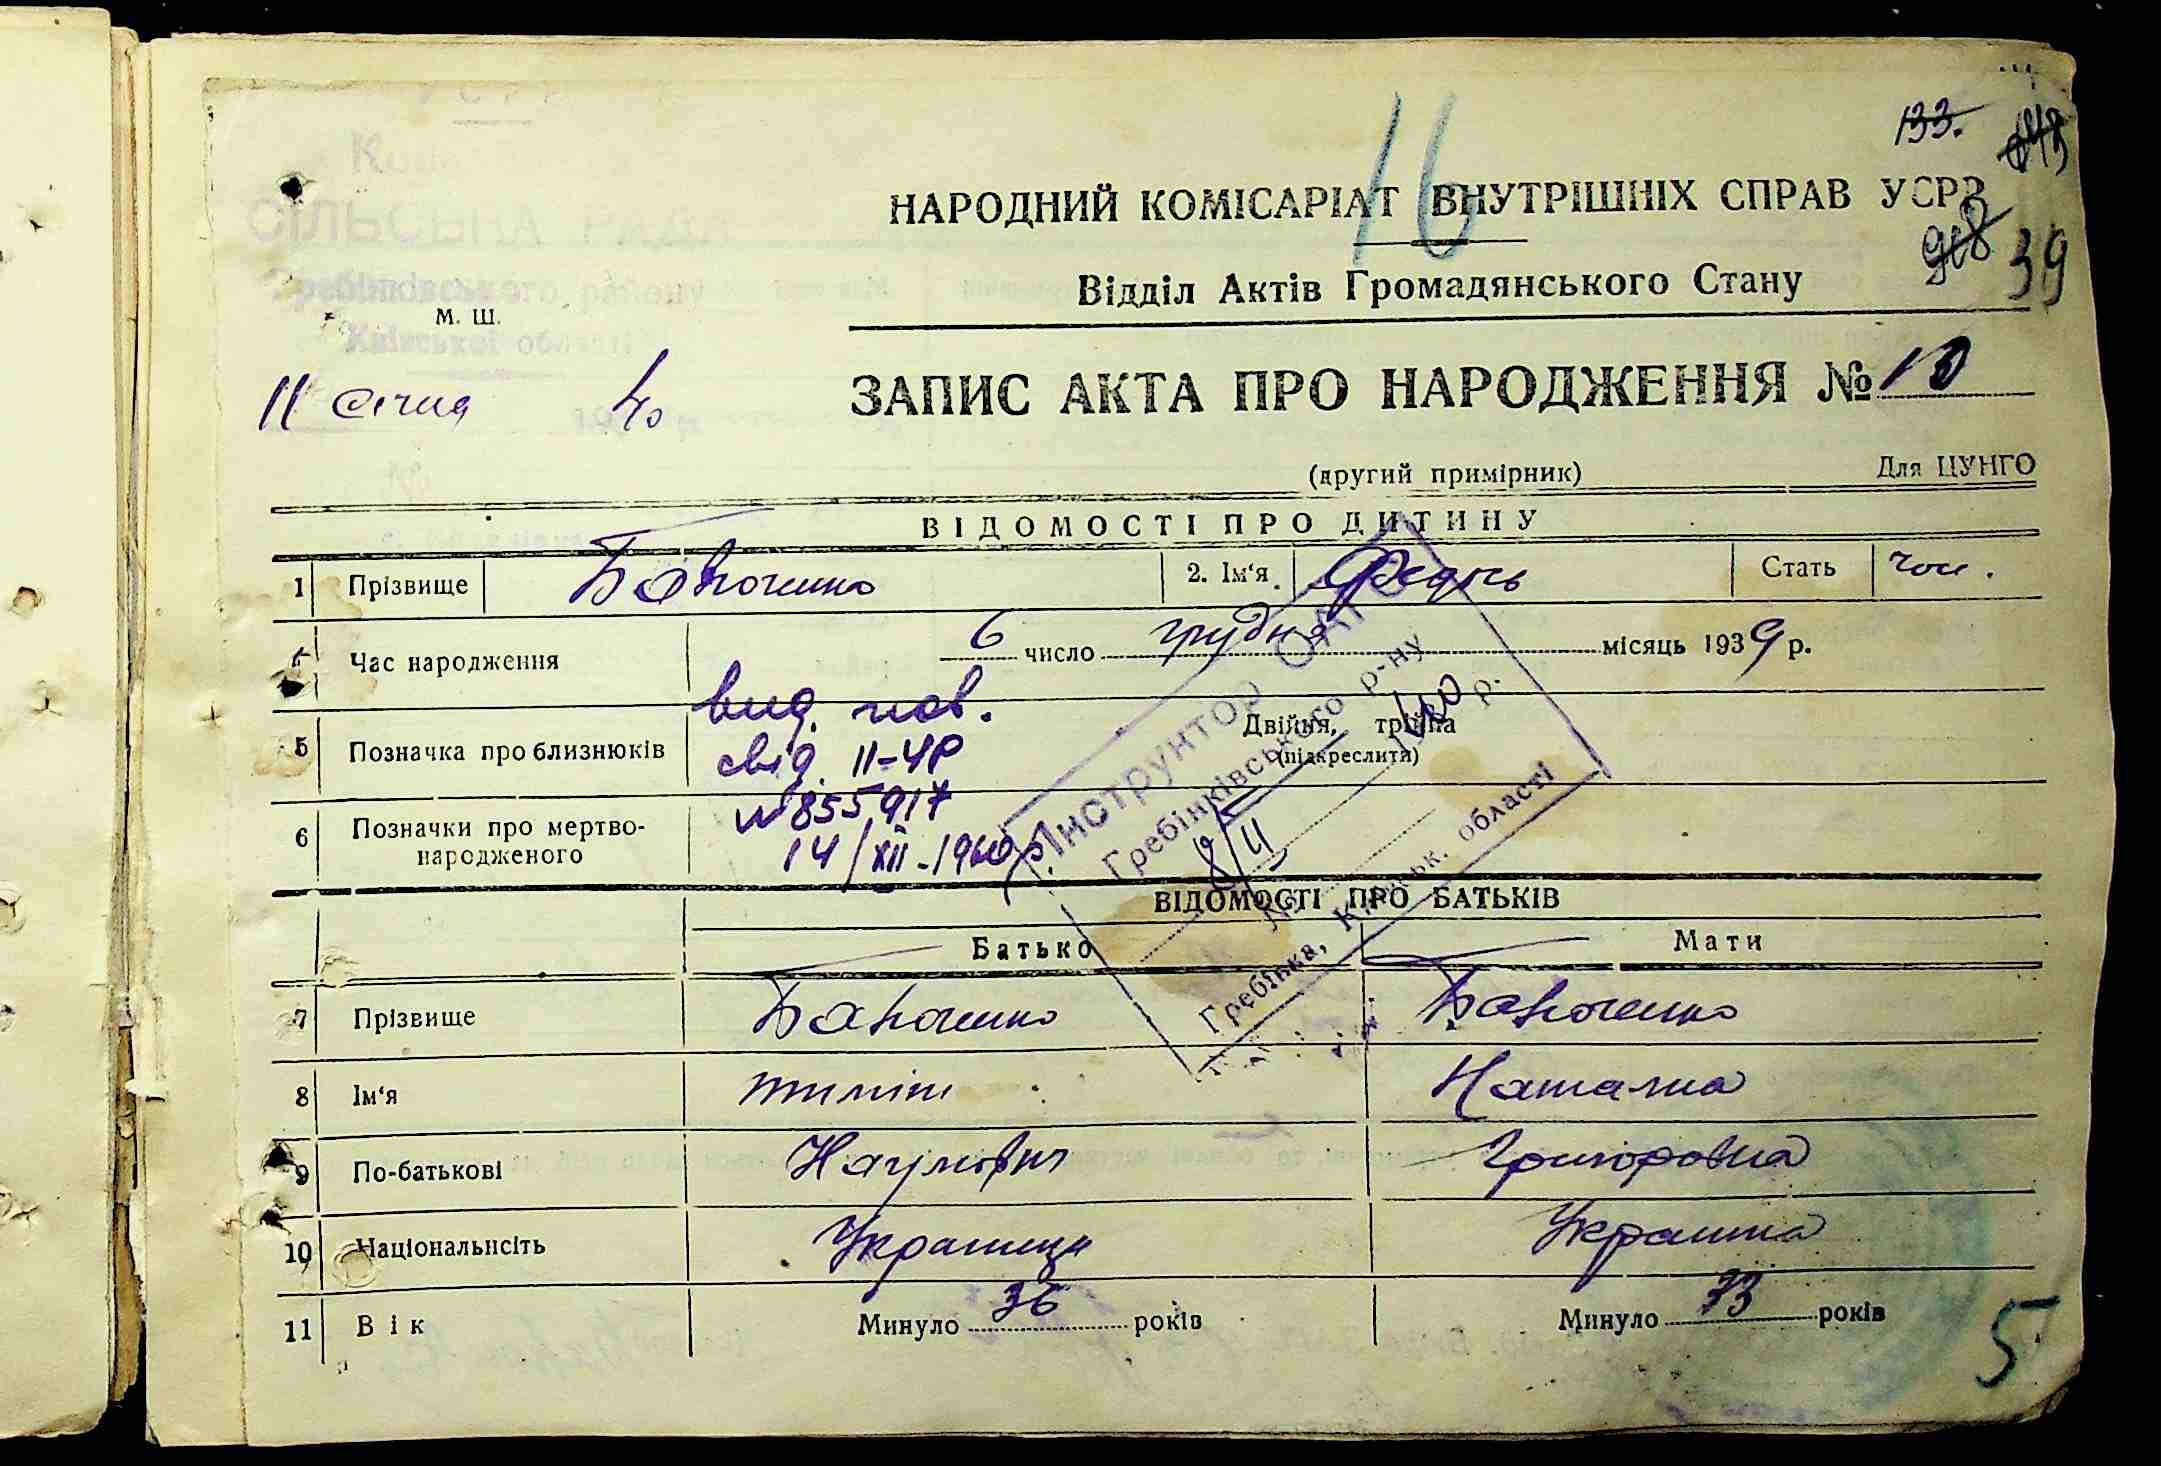 133.
16
НАРОДНИЙ КОМІСАРІАТ ВНУТРІШНІХ СПРАВ УСРР
39
Відділ Актів Громадянського Стану
СІЛЬСЬКА РАДА
Гребінківського району
Київської області
М. Ш.
11 січня 40
ЗАПИС АКТА ПРО НАРОДЖЕННЯ № 10
(другий примірник) Для ЦУНГО
ВІДОМОСТІ ПРО ДИТИНУ
1 Прізвище 2. Ім'я Федір Стать чол.
Час народження 6 число грудня місяць 1939 р.
5 Позначка про близнюків Двійня, трійня
(підкреслити)
6 Позначки про мертво-
народженого
вид. пов.
свід. II-ЧР
№855917
14/XII-1960р.
Інструктор ОАГС
Гребінківського р-ну
8/II 1940 р.
№
Гребінка, Київськ. області
ВІДОМОСТІ ПРО БАТЬКІВ
Батько Мати
7 Прізвище
8 Ім'я Наталка
9 По-батькові Наумович Григоровна
10 Національність Українець Українка
11 Вік Минуло 36 років Минуло 33 років
5